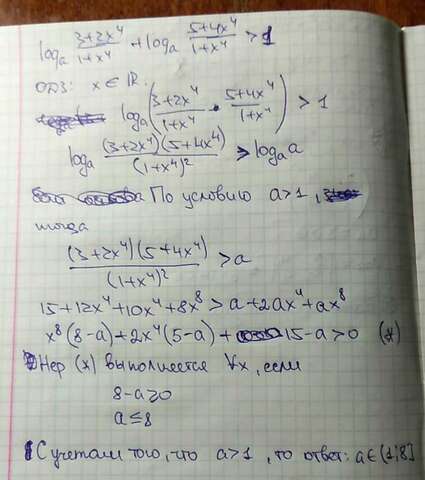 logₐ (3+2x⁴)/(1+x⁴) + logₐ (5+4x⁴)/(1+x⁴) > 1
ОДЗ: x ∈ ℝ.
logₐ((3+2x⁴)/(1+x⁴) · (5+4x⁴)/(1+x⁴)) > 1
logₐ (3+2x⁴)(5+4x⁴)/(1+x⁴)² > logₐ a
По условию a>1,
тогда
(3+2x⁴)(5+4x⁴)/(1+x⁴)² > a
15+12x⁴+10x⁴+8x⁸ > a+2ax⁴+ax⁸
x⁸(8-a)+2x⁴(5-a)+15-a>0 (*)
Нер (*) выполняется ∀x, если
8-a≥0
a≤8
С учетом того, что a>1, то ответ: a∈(1;8]